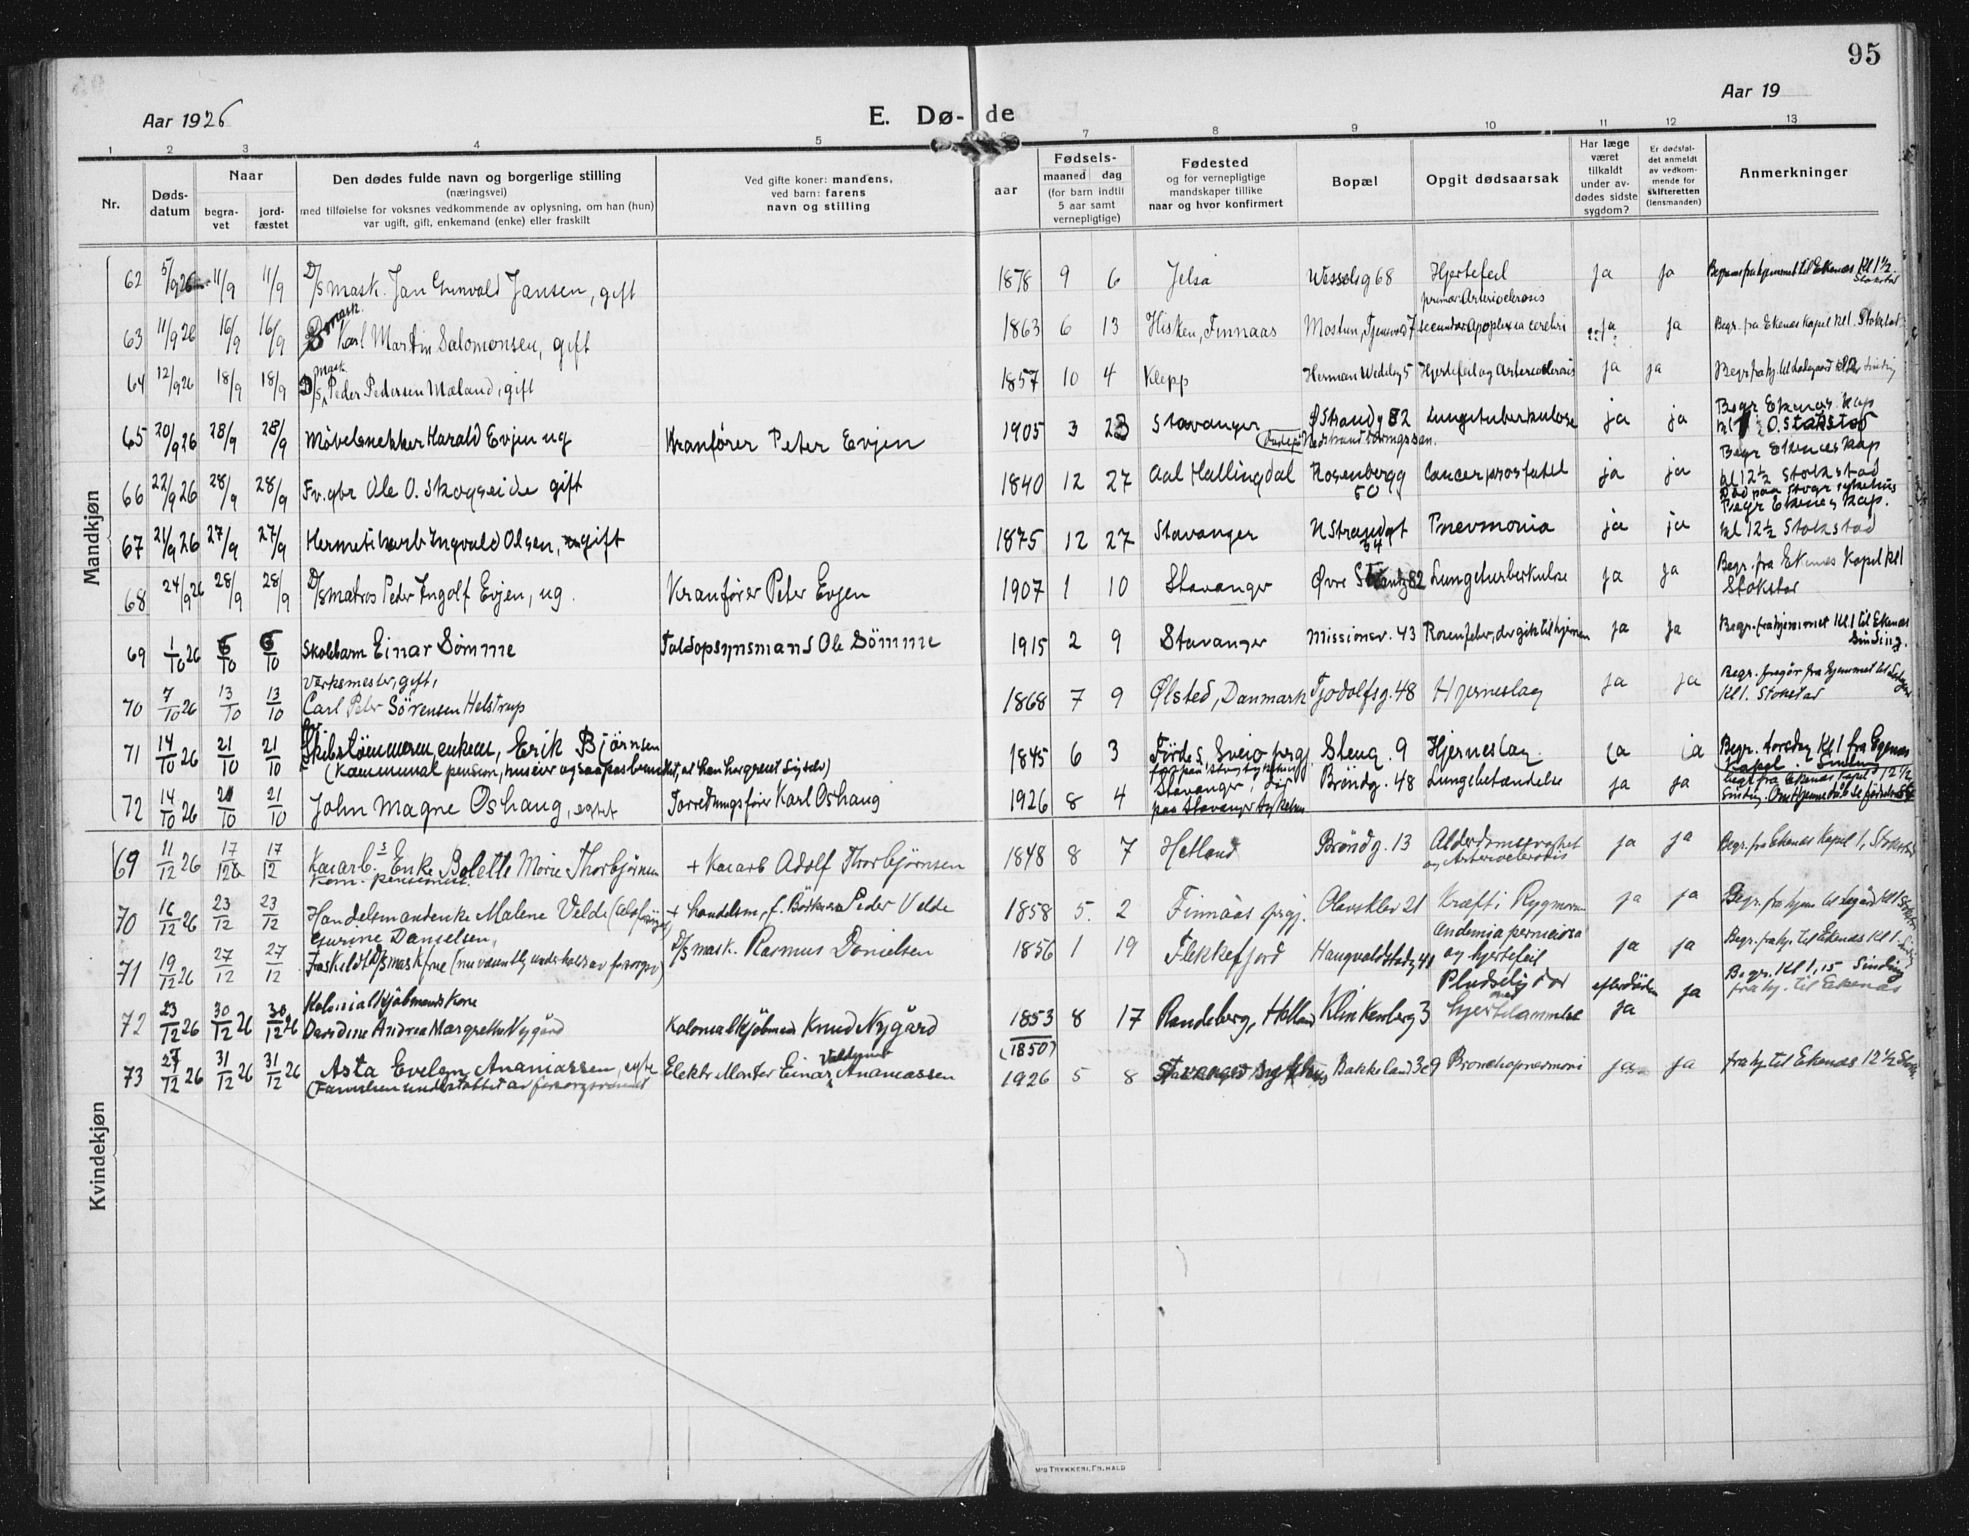 95
Aar 1926
E. Dø-de
Aar 19
1 2 3 4 5 7 8 9 10 11 12 13
Nr.
Døds-datum
Naar
begra-vet
jord-fæstet
Den dødes fulde navn og borgerlige stilling
(næringsvei)
med tilføielse for voksnes vedkommende av oplysning, om han (hun)
var ugift, gift, enkemand (enke) eller fraskilt
Ved gifte koner: mandens,
ved barn: farens
navn og stilling
Fødsels-
aar
maaned
dag
(for barn indtil
5 aar samt
vernepligtige)
Fødested
og for vernepligtige
mandskaper tillike
naar og hvor konfirmert
Bopæl
Opgit dødsaarsak
Har læge
været
tilkaldt
under av-
dødes sidste
sygdom?
Er dødsfal-
det anmeldt
av vedkom-
mende for
skifteretten
(lensmanden)
Anmerkninger
Mandkjøn
62 5/9 26 11/9 11/9 D/S mask. Jan Grunvald Jansen, gift 1878 9 6 Jelsa Wesselsg 68 Hjertefeil ja ja Begr. fra hjemmet til Ekenæs Kl 1 1/2 Stokstad
63 11/9 26 16/9 16/9 D/S mask. Karl Martin Salomonsen, gift 1863 6 13 Hisken, Finnaas primær Arteriosclerosis secundær Apoplexia cerebri ja ja Begr. fra Ekenæs Kapel kl 1. Stokstad
64 12/9 26 18/9 18/9 D/S mask. Peder Pedersen Mæland, gift 1857 10 4 Klepp Herman Wedelsg 5 Hjertefeil og Arteriosclerosis ja ja
65 20/9 26 28/9 28/9 Møbelsnekker Harald Evjen ug Kranfører Peter Evjen 1905 3 23 Stavanger Ø Strandg 82 Lungetuberkulose ja ja Begr Ekenæs Kap kl 1 O. Stakstad
66 22/9 26 28/9 28/9 Fv. gbr Ole O. Skogseide gift 1840 12 27 Aal Hallingdal Rosenbergg 50 Cancer prostatae ja ja Begr Ekenes Kap kl 12 1/2 Stokstad
67 21/9 26 27/9 27/9 Hermetikarb Ingvald Olsen, gift 1875 12 27 Stavanger N Strandgt 54 Pnevmonia ja ja Død paa Stvgr sykehus Begr Ekenes Kap. kl 12 1/2 Stokstad
68 24/9 26 28/9 28/9 D/S matros Peder Ingolf Evjen, ug. Kranfører Peter Evjen 1907 1 10 Stavanger Øvre Strandg 82 Lungeturberkulose ja ja Begr. fra Ekenæs Kapel kl 1 Stokstad
69 1/10 26 6/10 6/10 Skolebarn Einar Sömme Toldopsynsmand Ole Sömme 1915 2 9 Stavanger Missionsv. 43 Rosenfeber, der gik til hjernen ja ja Begr. fra hjemmet Kl 1 til Ekenæs Sinding.
70 7/10 26 13/10 13/10 Verksmester, gift, Carl Peter Sørensen Helstrup 1868 7 9 Ølsted, Danmark Tjodolfsg. 48 Hjerneslag ja ja Kl 1. Stokstad
71 14/10 26 21/10 21/10 Skibstömmerm, enkem, Erik Bjørnsen 1845 6 3 Förde S, Sveio prgj. Steng. 9 Hjerneslag. ja ja Begr. torsdag Kl 1 fra Egenæs Kapel.
72 14/10 26 21/10 21/10 John Magne Oshaug, egtef Forretningsfører Karl Oshaug 1926 8 4 Stavanger, død paa Stavanger sykehus Bröndg. 48 Lungebetændelse ja ja
Kvindekjøn
69 11/12 26 17/12 17/12 Kaiarb.s Enke Bolette Marie Thorbjörnsen Kom. pensionist + Kaiarb Adolf Thorbjörnsen 1848 8 7 Hetland Bröndg. 13 Alderdomssvakhet og Arteriosclerosis ja ja Begr. fra Ekenæs Kapel 1, Stokstad
70 16/12 26 23/12 23/12 Handelsmandenke Malene Velde + handelsm, f. Bödker Peder Velde 1858 5. 2 Finnaas prgj. Olavsklev 21 Kræft i Rygmarven ja ja
71 19/12 26 27/12 27/12 Gurine Danielsen, Fraskildt D/S mask frue D/S mask. Rasmus Danielsen 1856 1 19 Flekkefjord Haugvaldstadg 41 Anæmia perniciosa og hjertefeil ja ja Begr. fra hj. til Ekenæs Kl 1.
72 23/12 26 30/12 26 30/12 26 Kolonialkjöbmands Kone Davidine Andrea Margrethe Nygård Kolonialkjöbman Knud Nygård 1853 (1850) 8 17 Randeberg, Hetland Klinkenberg 3 Pludselig død med Hjertelammelse efter döden ja ja Begr. Kl 1,15 Sinding fra hj. til Ekenæs
73 27/12 26 31/12 26 31/12 26 Asta Evelyn Ananiassen, egte (Familien understöttet av forsorgsvæsenet) Elektr Montør Einar Valdemar Ananiassen 1926 5 8 Stavanger Sykehus Bakkeland 39 Bronchopnevmoni ja ja fra hj. til Ekenæs 12 1/2
M/S TRYKKERI, FR. HALD